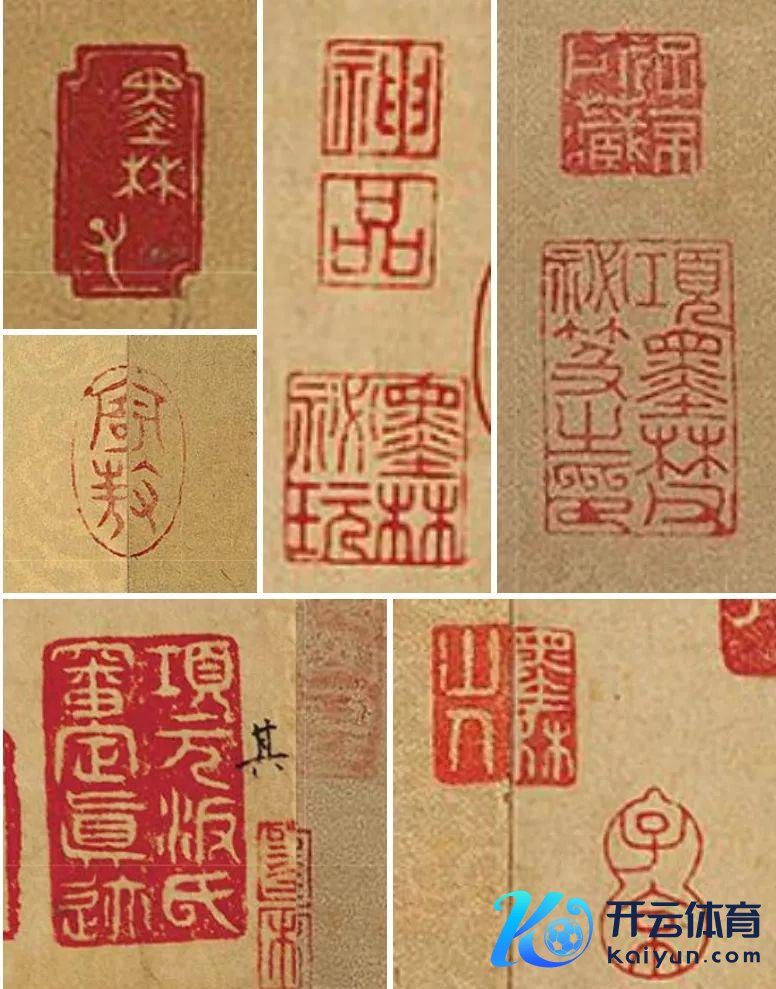 墨林
子
神
品
墨林
祕玩
項墨林父
祕笈之印
項元汴氏
審定眞迹
其
墨林
山人
子京
开云体育
kaiyun.com